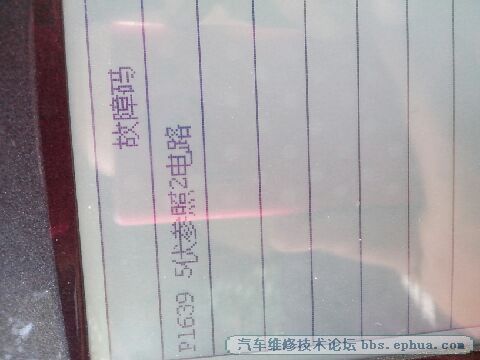 故障码
P1639 5伏参照2电路
汽车维修技术论坛 bbs.ephua.com